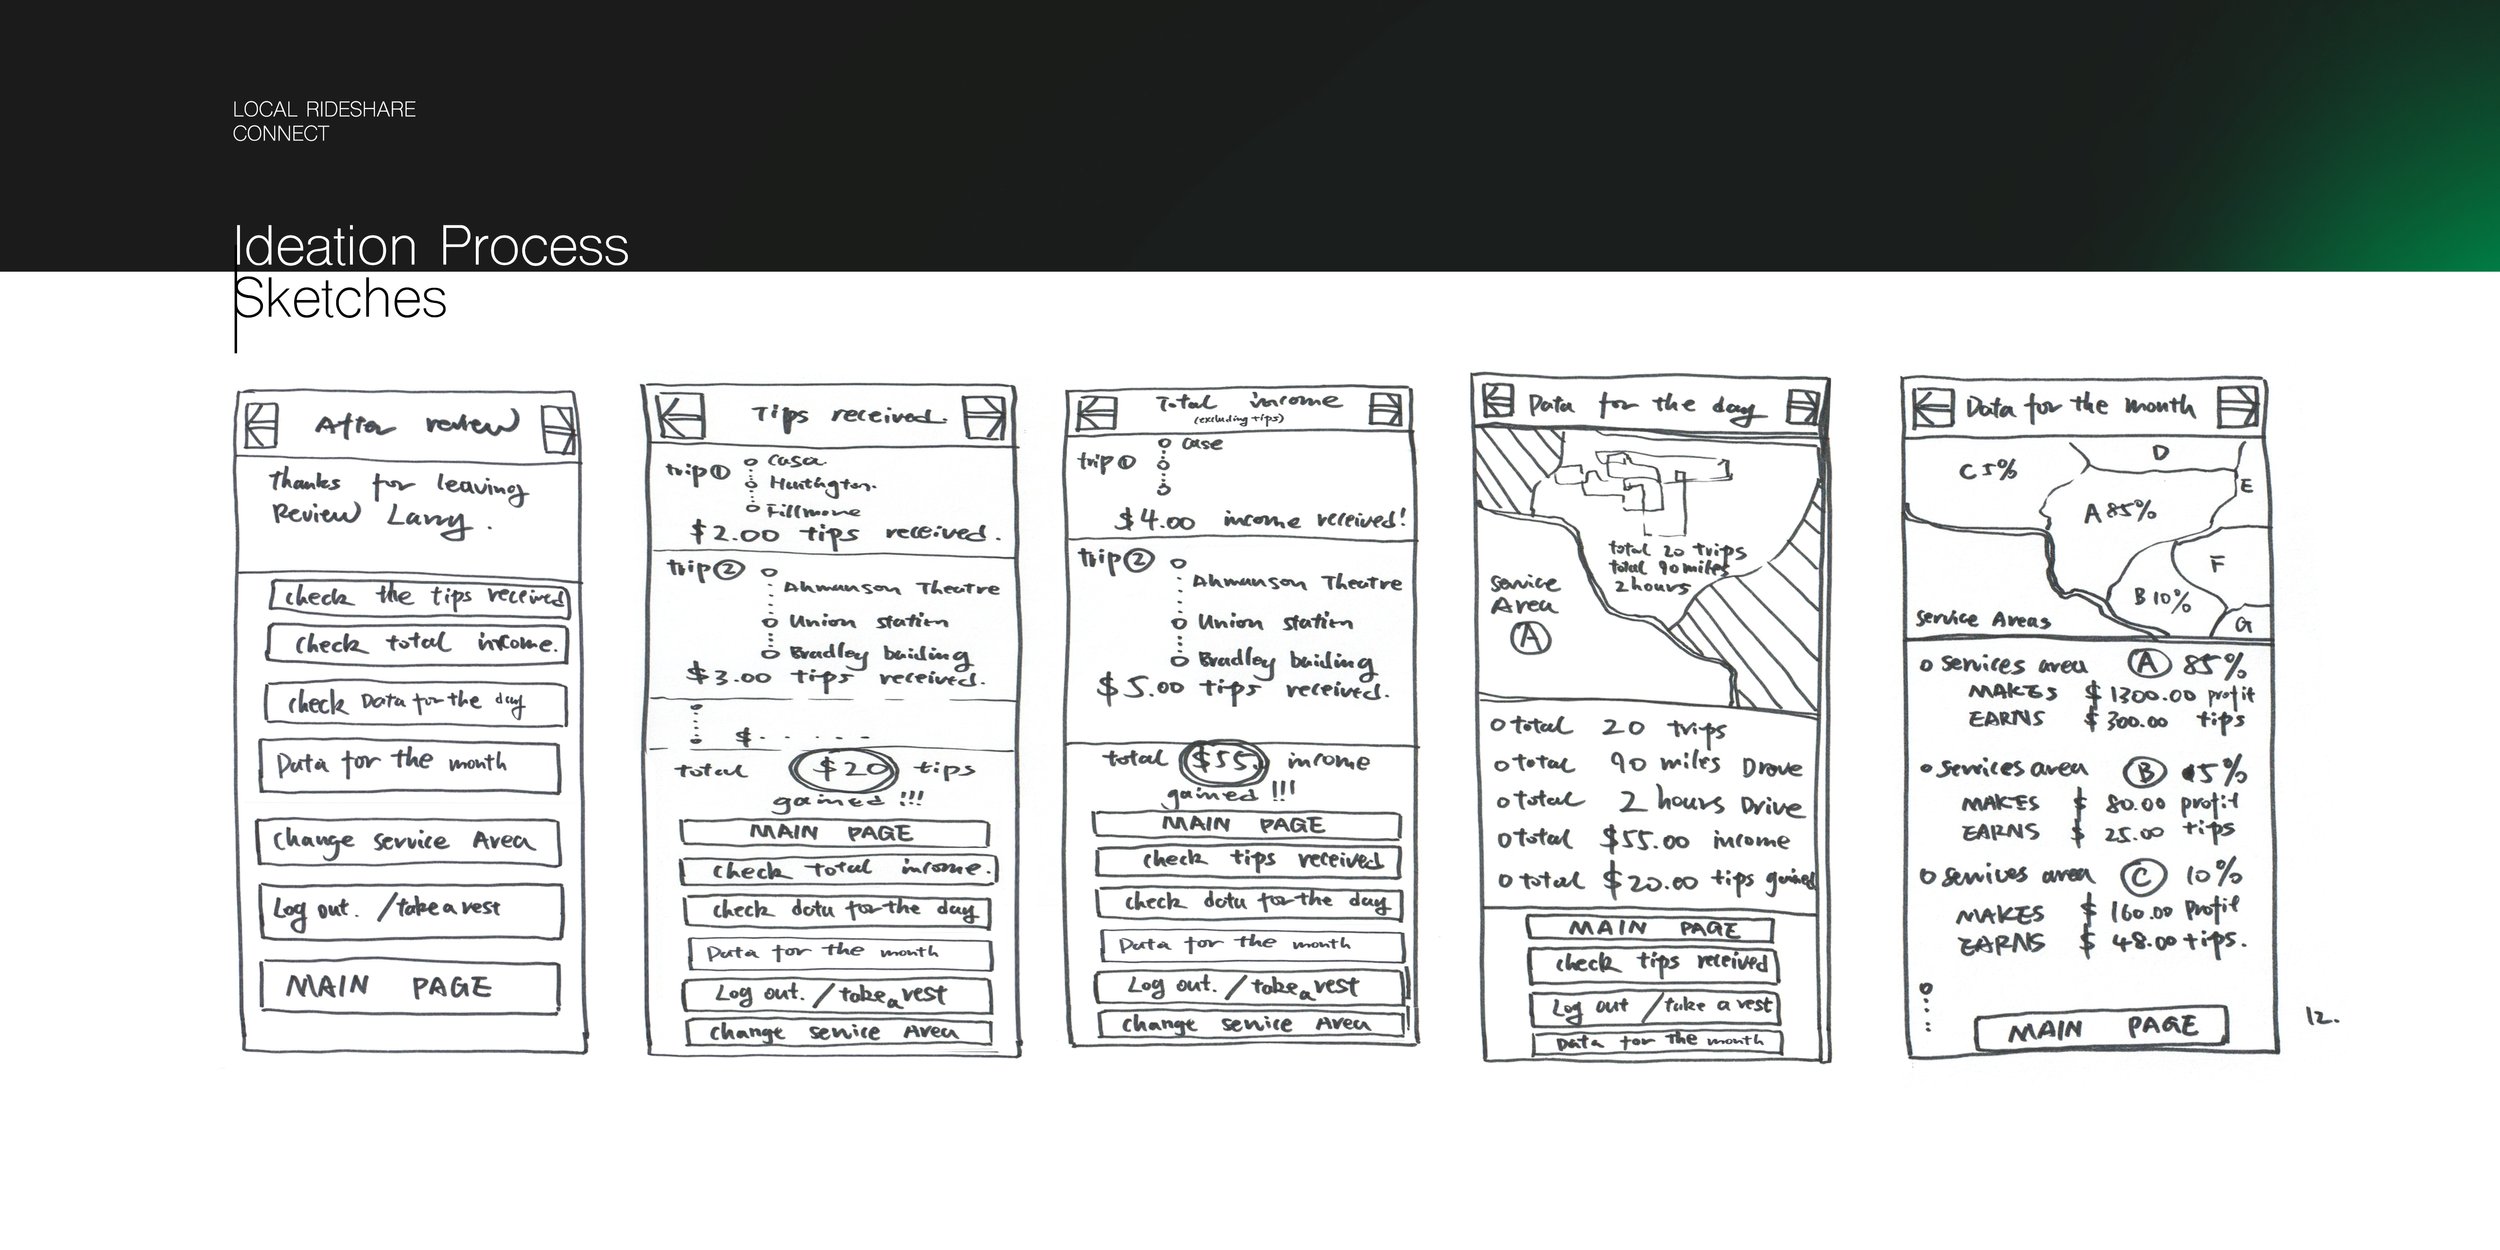 LOCAL RIDESHARE
CONNECT
Ideation Process
Sketches
After review
Thanks for leaving
Review Larry.
check the tips received
check total income.
check Data for the day
Data for the month
change service Area
Log out. / take a rest
MAIN PAGE
Tips received.
trip ①
casa
Huntington.
Fillmone
$2.00 tips received.
trip ②
Ahmanson Theatre
Union station
Bradley building
$3.00 tips received.
$. . . . .
total $20 tips
gained !!!
MAIN PAGE
check total income.
check data for the day
Data for the month
Log out. / take a rest
change service Area
Total income
(excluding tips)
trip ①
case
$4.00 income received!
trip ②
Ahmanson Theatre
Union station
Bradley building
$5.00 tips received.
total $55. income
gained !!!
MAIN PAGE
check tips received
check data for the day
Data for the month
Log out. / take a rest
change service Area
Data for the day
total 20 trips
total 90 miles
2 hours
service
Area
A
total 20 trips
total 90 miles Drove
total 2 hours Drive
total $55.00 income
total $20.00 tips gained
MAIN PAGE
check tips received
Log out / take a rest
Data for the month
Data for the month
C 5%
D
E
A 85%
F
B 10%
G
Service Areas
services area A 85%
MAKES $1300.00 profit
EARNS $300.00 tips
services area B 5%
MAKES $80.00 profit
EARNS $25.00 tips
services area C 10%
MAKES $160.00 profit
EARNS $48.00 tips.
MAIN PAGE
12.